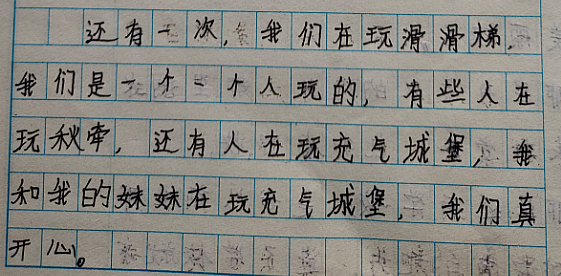 还有一次，我们在玩滑滑梯，
我们是一个一个人玩的，有些人在
玩秋牵，还有人在玩充气城堡，我
和我的妹妹在玩充气城堡，我们真
开心。